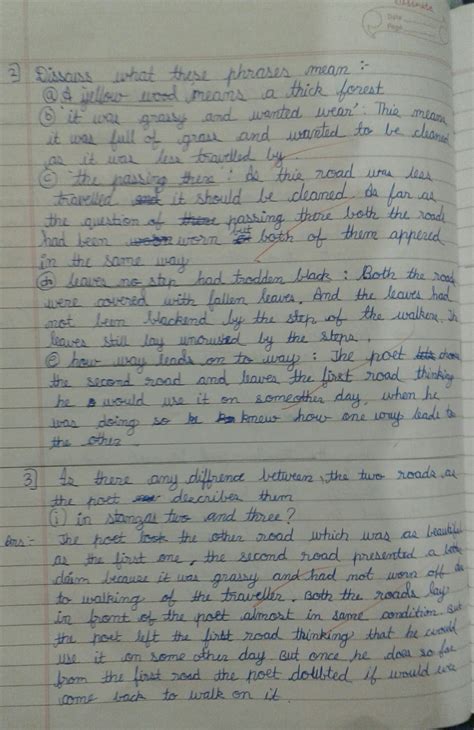 Date
Page
2) Discuss what these phrases mean :-
(a) A yellow wood means a thick forest
(b) 'it was grassy and wanted wear': This means
it was full of grass and wanted to be cleaned
as it was less travelled by.
(c) 'the passing there': As this road was less
travelled and it should be cleaned. As far as
the question of there passing there both the roads
had been worn but both of them appered
in the same way
(d) leaves no step had trodden black : Both the roads
were covered with fallen leaves. And the leaves had
not been blackend by the step of the walkers. The
leaves still lay uncrusted by the steps.
(e) how way leads on to way : The poet chose
the second road and leaves the first road thinking
he would use it on someother day. when he
was doing so he knew how one way leads to
the other.
3] Is there any diffrence between, the two roads as
the poet describes them
(i) in stanzas two and three?
Ans:- The poet took the other road which was as beautiful
as the first one, the second road presented a better
claim because it was grassy and had not worn off due
to walking of the traveller. Both the roads lay
in front of the poet almost in same condition. But
the poet left the first road thinking that he would
use it on some other day. But once he does so far
from the first road the poet doubted if would ever
come back to walk on it.